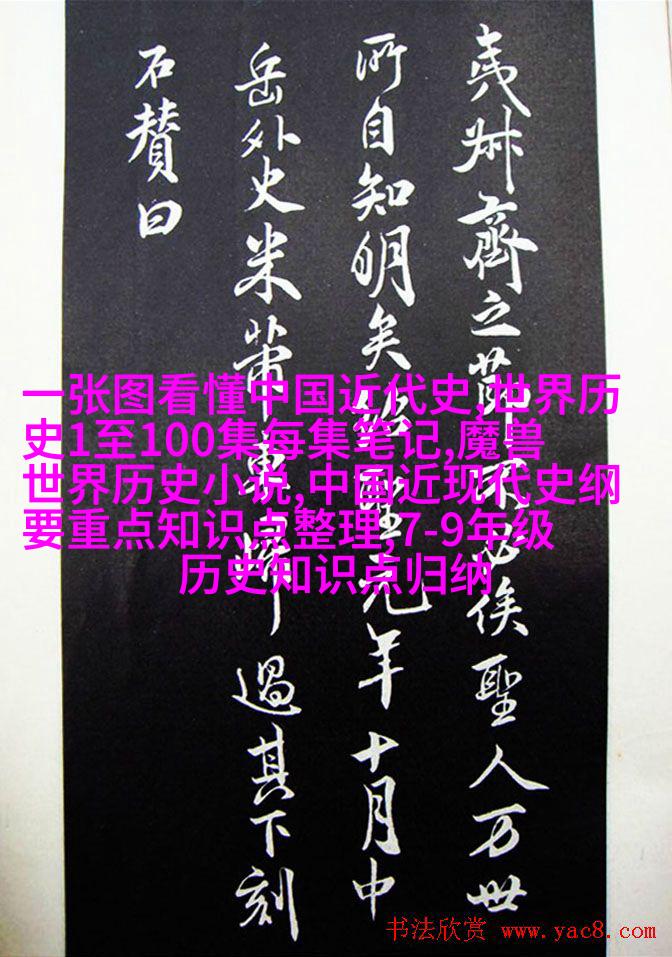 夷齊之必俟聖人万世
所自知明矣紹聖元年十月中
岳外史米芾東歸過其下刻
石賛曰
一张图看懂中国近代史,世界历
史1至100集每集笔记,魔兽
世界历史小说,中国近现代史纲
要重点知识点整理,7-9年级
历史知识点归纳
书法欣赏 www.yac8.com